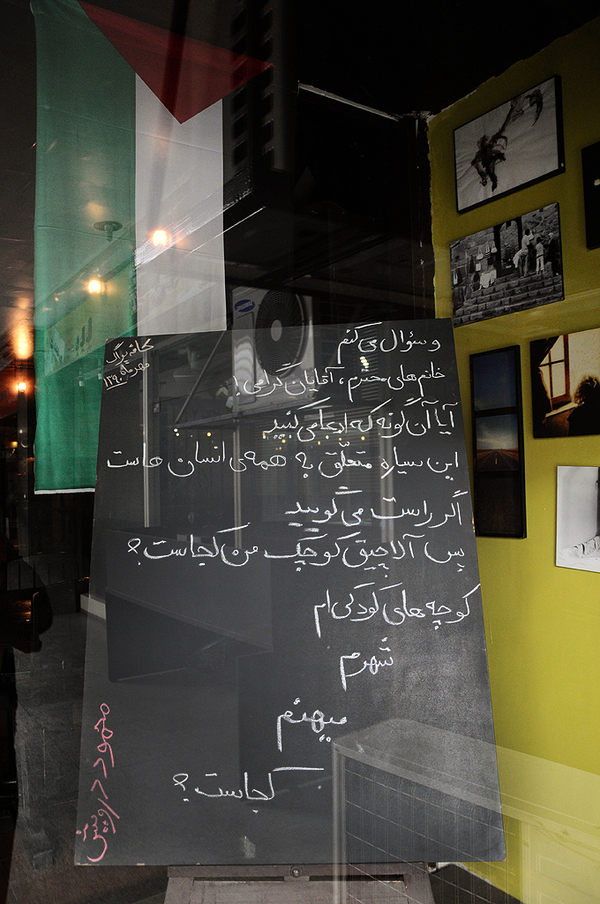 کافه پراگ
مهرماه ۱۳۹۰
و سؤال می‌کنم
خانم‌های محترم، آقایان گرامی!
آیا آن گونه که ادعا می‌کنید
این سیاره متعلّق به همه‌ی انسان هاست
اگر راست می‌گویید
پس آلاچیق کوچک من کجاست؟
کوچه های کودکی ام
شهرم
میهنم
کجاست؟
محمود درویش